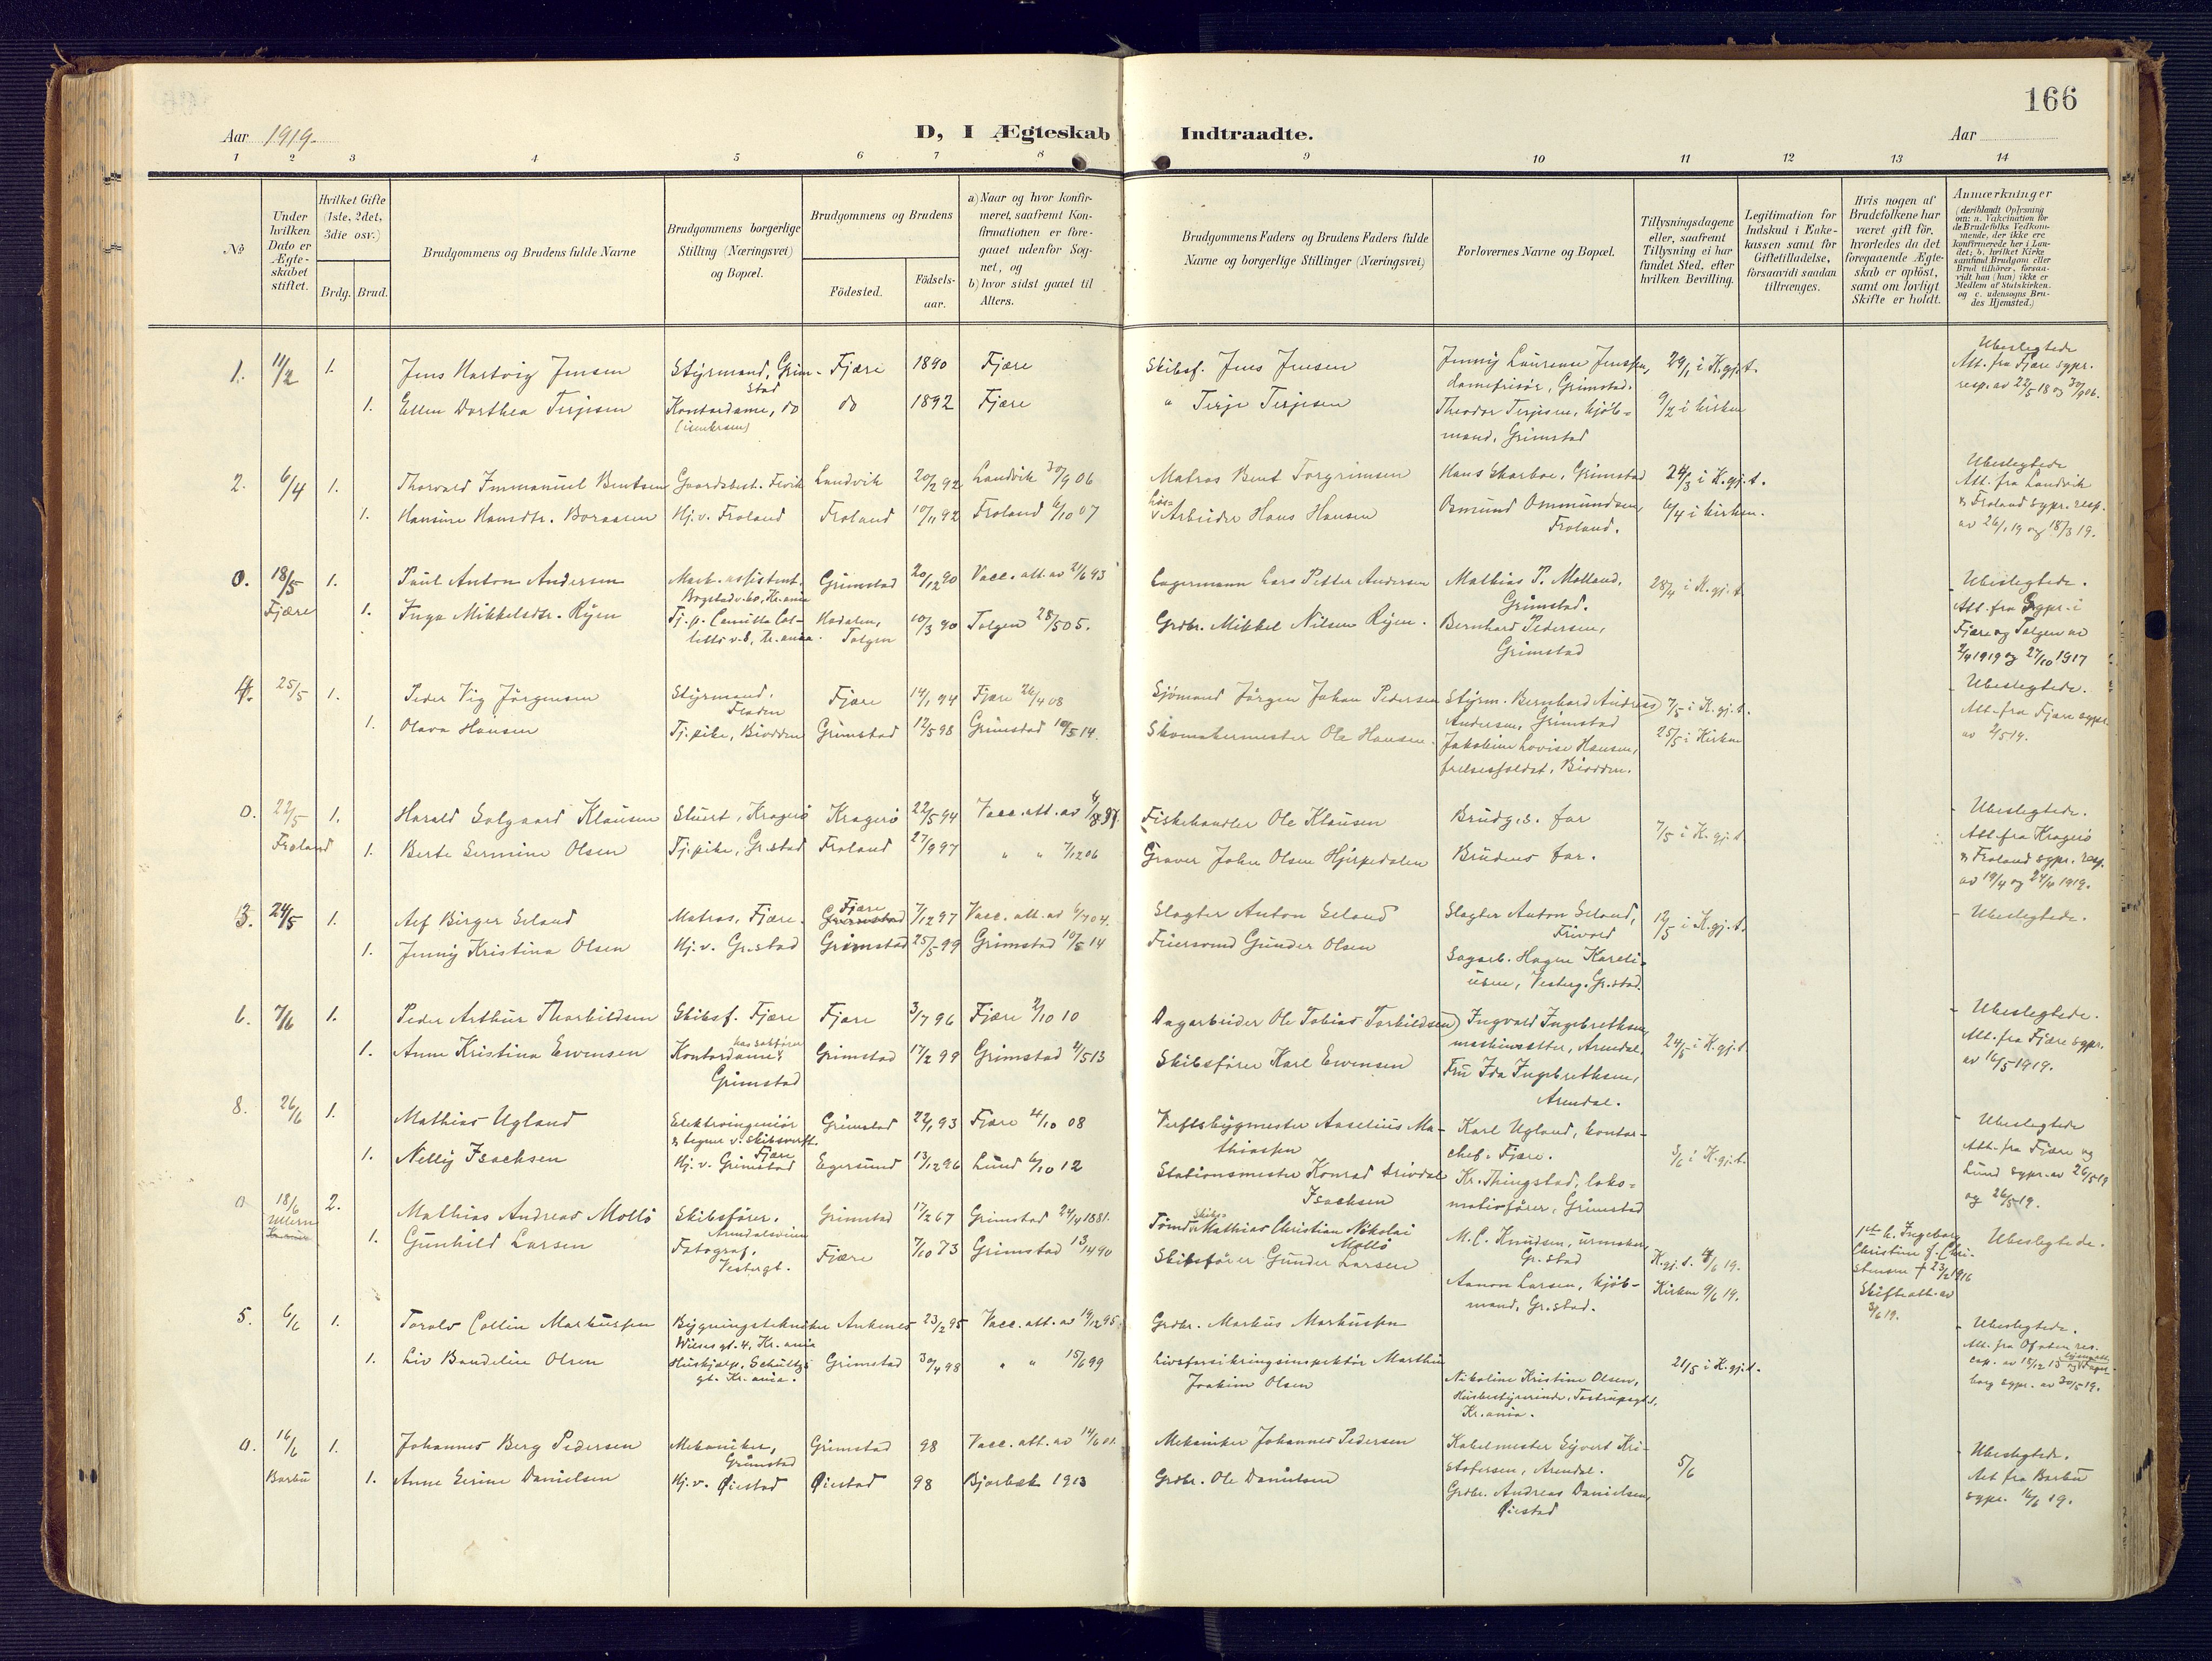 166
Aar 1919. D, I Ægteskab Indtraadte. Aar
1 2 3 4 5 6 7 8 9 10 11 12 13 14
№
Under hvilken Dato er Ægteskabet stiftet.
Hvilket Gifte (1ste, 2det, 3die osv.)
Brdg. Brud.
Brudgommens og Brudens fulde Navne
Brudgommens borgerlige Stilling (Næringsvei) og Bopæl.
Brudgommens og Brudens
Födested. Födsels-aar.
a) Naar og hvor konfirmeret, saafremt Konfirmationen er foregaaet udenfor Sognet, og
b) hvor sidst gaaet til Alters.
Brudgommens Faders og Brudens Faders fulde Navne og borgerlige Stillinger (Næringsvei)
Forlovernes Navne og Bopæl.
Tillysningsdagene eller, saafremt Tillysning ei har fundet Sted, efter hvilken Bevilling.
Legitimation for Indskud i Enkekassen samt for Giftetilladelse, forsaavidt saadan tiltrænges.
Hvis nogen af Brudefolkene har været gift för, hvorledes da det foregaaende Ægteskab er oplöst, samt om lovligt Skifte er holdt.
Anmærkninger
(deriblandt Oplysning om: a. Vakcination for de Brudefolks Vedkommende, der ikke ere konfirmerede her i Landet; b. hvilket Kirkesamfund Brudgom eller Brud tilhörer, forsaavidt han (hun) ikke er Medlem af Statskirken. og c. udensogns Brudes Hjemsted.)
1. 11/2 1. Jens Hartvig Jensen Styrmand, Grimstad Fjære 1890 Fjære Skibsf. Jens Jensen Jenny Laurense Jenssen, damefrisör, Grimstad. 29/1 i K.gj.t. Ubeslegtede Att. fra Fjære sypr. resp. av 22/5 18 og 30/9 06.
1. Ellen Dorthea Terjesen Kontordame, do do 1892 Fjære " Terje Terjesen Theodor Terjesen, kjöbmand, Grimstad 9/2 i kirken
2. 6/4 1. Thorvald Immanuel Bentsen Gaardsbest. Fevik Landvik 20/2 92 Landvik 30/9 06 Matros Bent Torgrimsen Hans Skarboe, Grimstad 24/3 i K.gj.t. Ubeslegtede Att. fra Landvik & Froland sypr. resp. av 26/1 19 og 18/3 19.
1. Hansine Hansdtr. Boraasen Hj.v. Froland Froland 10/11 92 Froland 6/10 07 Arbeider Hans Hansen Osmund Ommundsen, Froland. 6/4 i kirken.
0. 18/5 Fjære 1. Paul Anton Andersen Mask.assistent, Bogstadv. 60, Kr.ania Grimstad 20/12 90 Vacc.att. av 21/6 93 Lagermann Lars Petter Andersen Mathias P. Molland, Grimstad. 28/4 i K.gj.t. Ubeslegtede. Att. fra Sypr. i Fjære og Tolgen av 2/4 1919 og 27/10 1917
1. Inga Mikkelsdtr. Ryen Tj.p. Camilla Collettsv. 8, Kr.ania. Hodalen, Tolgen 10/3 90 Tolgen 28/5 05. Grdbr. Mikkel Nilsen Ryen. Bernhard Pedersen, Grimstad
4. 25/5 1. Peder Vig Jörgensen Styrmand, Fjære 14/1 94 Fjære 26/4 08 Sjömand Jörgen Johan Pedersen Styrm. Bernhard Andreas Andersen, Grimstad 7/5 i K.gj.t. Ubeslegtede. Att. fra Fjære sypr. av 2/5 19.
1. Olava Hansen Tj.pike, Biodden Grimstad 12/5 98 Grimstad 10/5 14. Skomakermester Ole Hansen. Jakobine Lovise Hansen, frelsesoldat, Biodden. 25/5 i Kirken
0. 22/5 Froland 1. Harald Solgaard Klausen Stuert, Kragerö Kragerö 22/5 94 Vacc.att. av 6/8 97. Fiskehandler Ole Klausen Brudg.s. far 7/5 i K.gj.t. Ubeslegtede. Att. fra Kragerö & Froland sypr. resp. av 19/4 og 24/4 1919.
1. Berte Sermine Olsen Tj.pike, Gr.stad Froland 27/9 97 " " 7/12 06 Graver John Olsen Hjerpedalen Brudens far.
3. 24/5 1. Alf Birger Seland Matros, Fjære. Fjære 7/12 97 Vacc.att. av 6/7 04. Slagter Anton Seland Slagter Anton Seland, Frivold 12/5 i K.gj.t. Ubeslegtede.
1. Jenny Kristina Olsen Hj.v. Gr.stad Grimstad 25/5 99 Grimstad 10/5 14 Gunder Olsen Sagarb. Hagen Kareliusen, Vesterg. Gr.stad.
6. 7/6 1. Peder Arthur Thorkildsen Skibsf. Fjære Fjære 3/7 96 Fjære 2/10 10 Dagarbeider Ole Tobias Torkildsen Ingvald Ingebrethsen, maskinsetter, Arendal. 24/5 i K.gj.t. Ubeslegtede. Att. fra Fjære sypr. av 16/5 1919.
1. Anne Kristina Evensen Kontordame & kasserer Grimstad Grimstad 17/2 99 Grimstad 4/5 13 Skibsförer Karl Evensen Fru Ida Ingebrethsen, Arendal.
8. 26/6 1. Mathias Ugland Elektroingeniör & tegner v. skibsverft. Fjære Grimstad 22/1 93 Fjære 4/10 08 Verftsbygmester Aanelius Mathiassen Karl Ugland, kontorchef. Fjære. 3/6 i K.gj.t. Ubeslegtede Att. fra Fjære og Lund sypr. av 26/5 19 og 26/5 19.
1. Nelly Isachsen Hj.v. Grimstad Egersund 13/12 96 Lund 6/10 12 Stationsmester Konrad Isachsen Kr. Thingstad, lokomotivförer, Grimstad
0 18/6 Ullern 2. Mathias Andreas Mollö Skibsförer. Arendalsveien Grimstad 17/2 67 Grimstad 24/4 1881. Mathias Christian Nikolai Mollö M.C. Knudsen, urmaker, Gr.stad K.gj.t. 4/6 19. 1ste h. Ingeborg Christine f. Christensen † 23/2 1916 Skifteatt. av 3/6 19. Ubeslegtede.
1. Gunhild Larsen Fotograf. Vestergt. Fjære 7/10 73 Grimstad 13/4 90 Skibsförer Gunder Larsen Aanon Larsen, kjöbmand, Gr.stad. Kirken 9/6 19.
5. 6/6 1. Toralv Collin Markussen Bygningstekniker Wilsesgt. 4, Kr.ania Ankenes 23/2 95 Vacc.att. av 19/12 95. Grdbr. Markus Markussen 21/5 i K.gj.t. Ubeslegtede. Att. fra Ofoten res. cap. av 15/12 13 og Fagerborg sypr. av 30/5 19.
1. Liv Bendeline Olsen Huskjelp, Schultzgt. Kr.ania. Grimstad 30/4 98 " " 15/6 99 Livsforsikringsinspektör Marthin Joakim Olsen Nikoline Kristine Olsen, Husbestyrerinde, Tostrupsgt. 1, Kr.ania.
0. 16/6 Barbu 1. Johannes Berg Pedersen Mekaniker, Grimstad Grimstad 98 Vacc.att. av 14/6 01. Mekaniker Johannes Pedersen Kabelmester Syvert Kristofersen, Arendal. 5/6 Ubeslegtede. Att fra Barbu sypr. 16/6 19.
1. Anne Serine Danielsen Hj.v. Øiestad Øiestad 98 Bjorbæk 1913 Grdbr. Ole Danielsen Grdbr. Andreas Danielsen, Øiestad